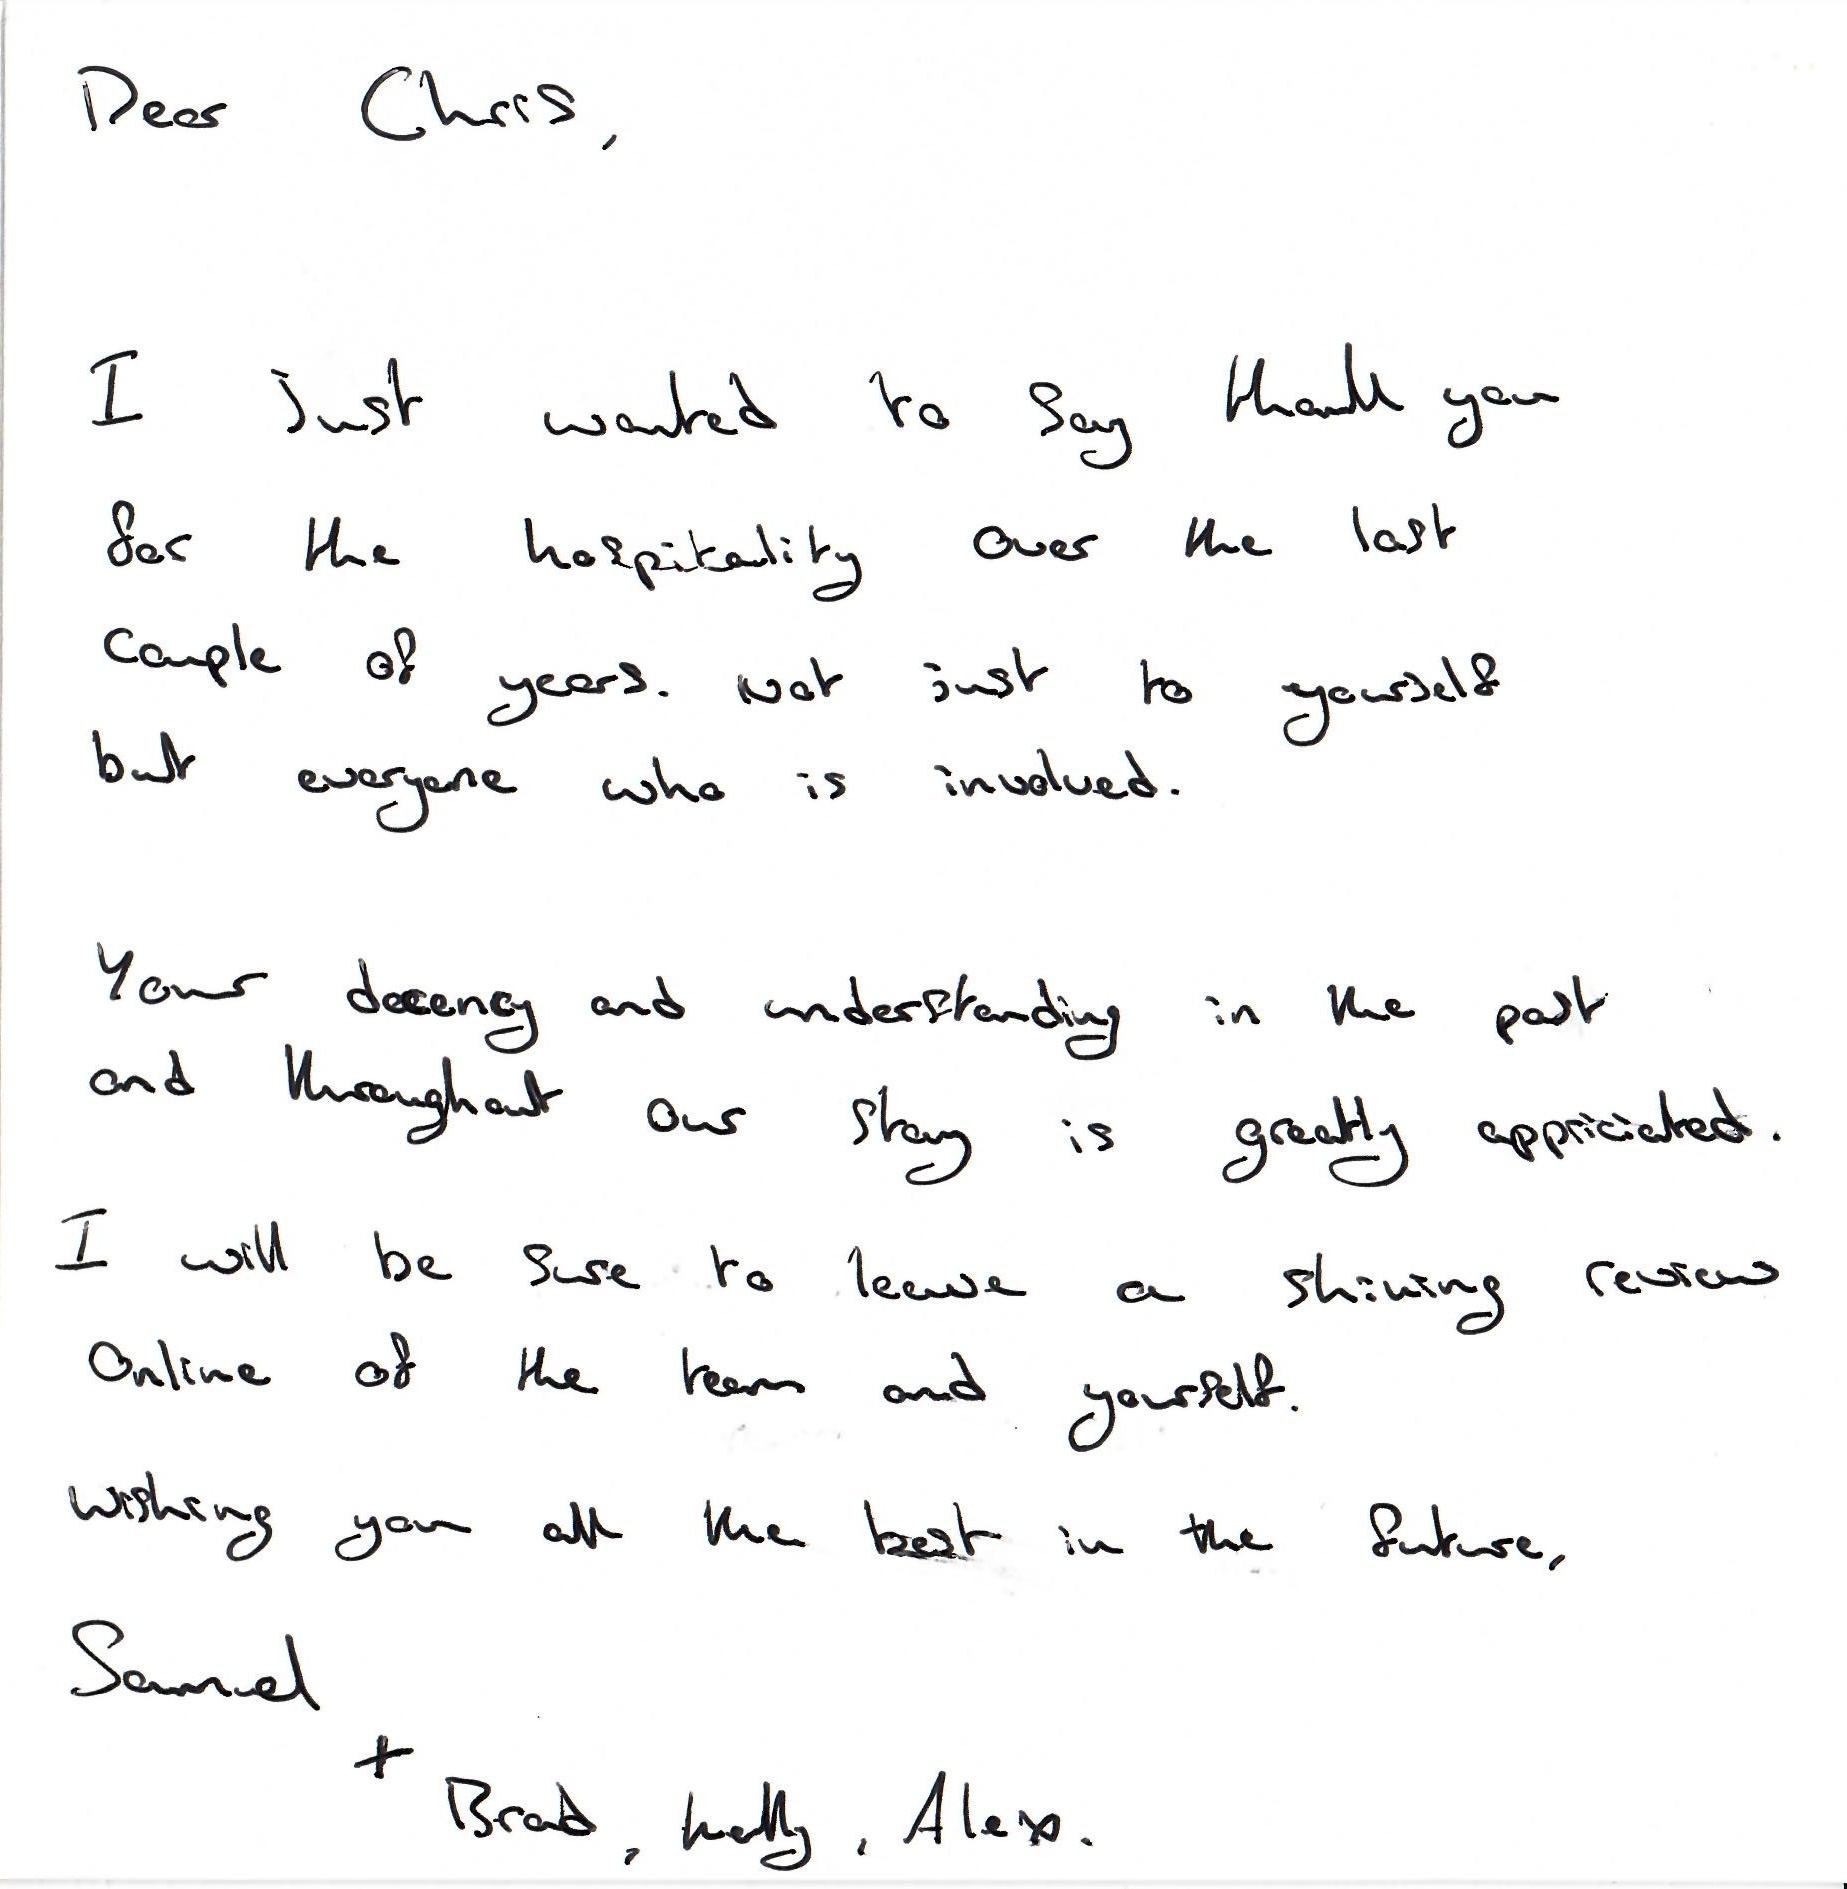 Dear Chris,
I just wanted to say thank you
for the hospitality over the last
couple of years. Not just to yourself
but everyone who is involved.
Your decency and understanding in the past
and throughout our stay is greatly appriciated.
I will be sure to leave a shining review
Online of the team and yourself.
wishing you all the best in the future,
Samuel
+
Brad, kelly, Alex.